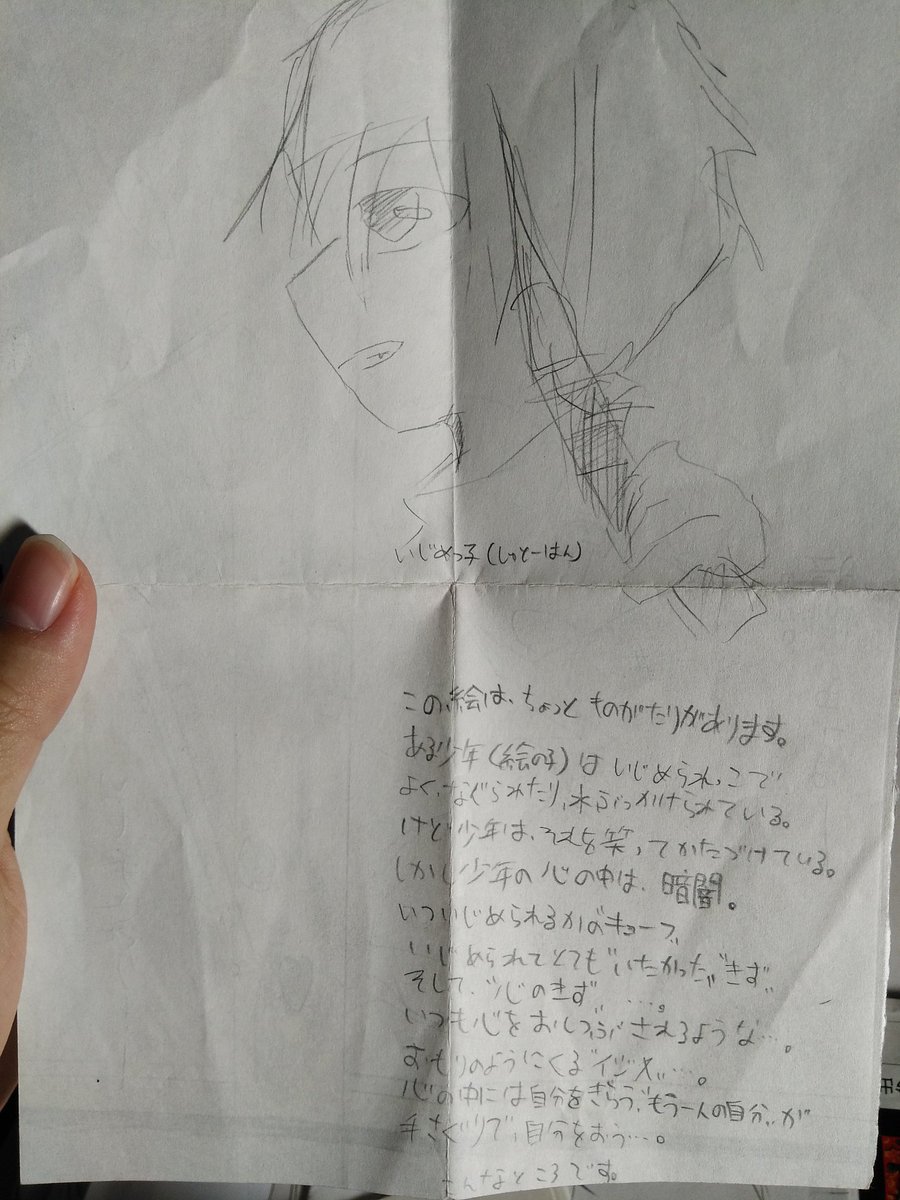 いじめっ子(しっとーはん)
この絵は、ちょっと ものがたりがあります。
ある少年(絵の子)は いじめられっこで
よく、なぐられたり、水ぶっかけられている。
けど少年は、それを笑ってかたづけている。
しかし少年の心の中は、暗闇。
いついじめられるかの"キョーフ"
いじめられてとても"いたかった"きず"
そして、"心のきず" …。
いつも心をおしつぶされるような…。
おもりのようにくる"イジメ"…。
心の中には自分をきらう、"もう一人の自分"が
手さぐりで、自分をおう…。
こんなところです。